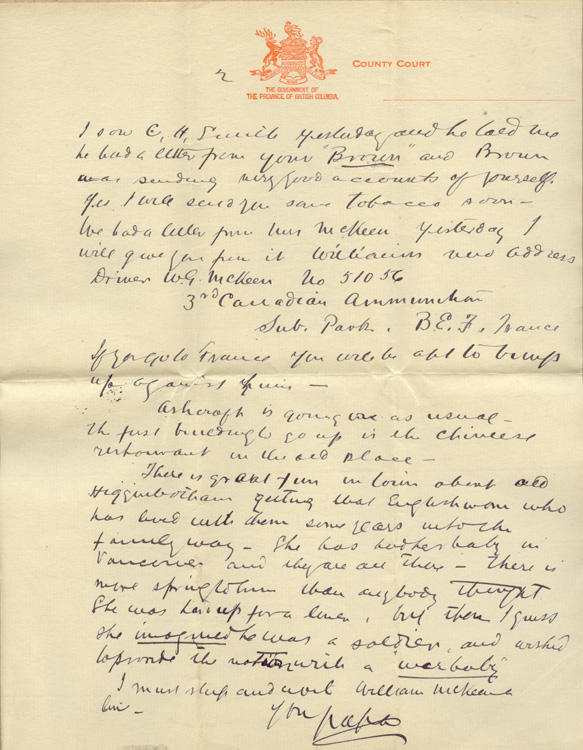 2
COUNTY COURT
THE GOVERNMENT OF
THE PROVINCE OF BRITISH COLUMBIA.
I saw C, H, Smith yesterday and he told me
he had a letter from your "Brown" and Brown
was sending very good accounts of yourself.
Yes I will send you some tobacco soon —
We had a letter from Mrs McKeen yesterday I
will give you from it Williams new address
Driver W.G. McKeen No 51056
3rd Canadian Ammunition
Sub. Park. B.E.F. France
If you go to France you will be apt to bump
up against him —
Ashcroft is going on as usual —
the first building to go up is the Chinese
restaurant in the old place —
There is great fun in town about old
Higginbotham getting that English woman who
has lived with them some years into the
family way — She has had her baby in
Vancouver and they are all there — There is
more spring to him than anybody thought
She was hired up for a , but then I guess
she imagined he was a soldier, and wished
to provide the nation with a "war baby"
I must stop and write William McKeen a
line —
Your papa